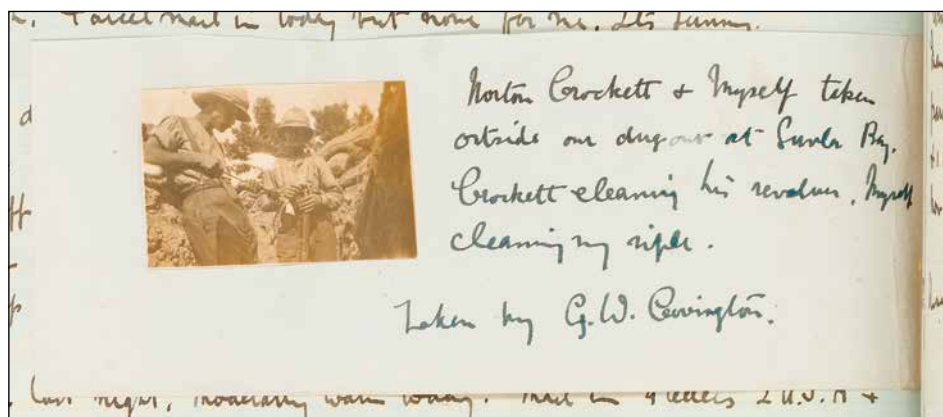 Parcel mail in today but none for me. Its sunny.
Norton Crockett & Myself taken
outside our dugout at Suvla Bay.
Crockett cleaning his revolver, Myself
cleaning my rifle.
Taken by G.W. Covington.
last night, moderately warm today. Mail in 4 letters 2 U.S.A +